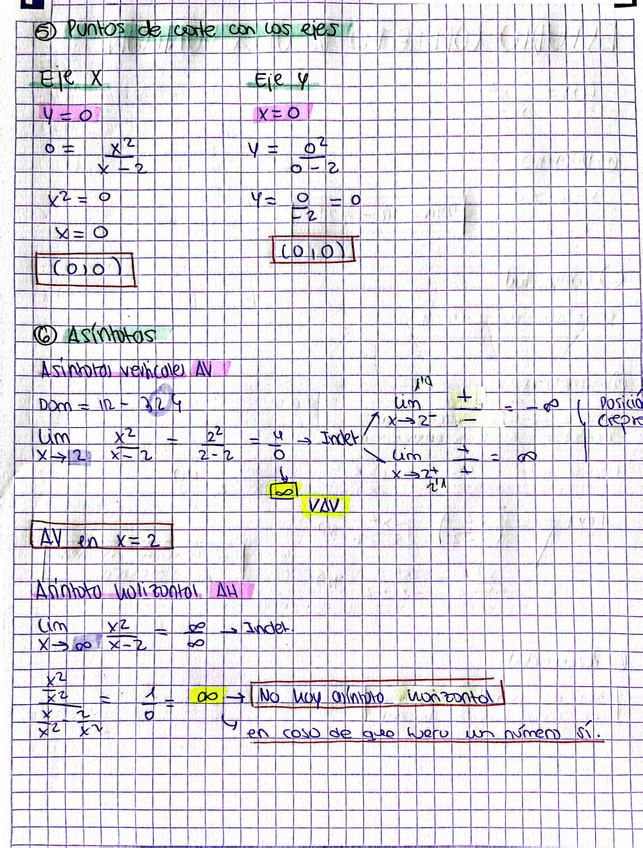 ⑤ Puntos de corte con los ejes
Eje X
y = 0
0 = x²/(x - 2)
x² = 0
x = 0
(0,0)
Eje Y
x = 0
y = 0²/(0 - 2)
y = 0/-2 = 0
(0,0)
⑥ Asíntotas
Asíntotas verticales AV
Dom = IR - {2}
Lim x→2 x²/(x-2) = 2²/(2-2) = 4/0 → Indet
∞
∃AV
1'9
Lim x→2⁻ +/- = -∞
Lim x→2⁺ +/+ = ∞
2'1
Posició
(repre
AV en x = 2
Asíntota horizontal AH
Lim x→∞ x²/(x-2) = ∞/∞ → Indet.
(x²/x²)/(x/x² - 2/x²) = 1/0 = ∞ → No hay asíntota horizontal
↳ en caso de que fuera un número sí.